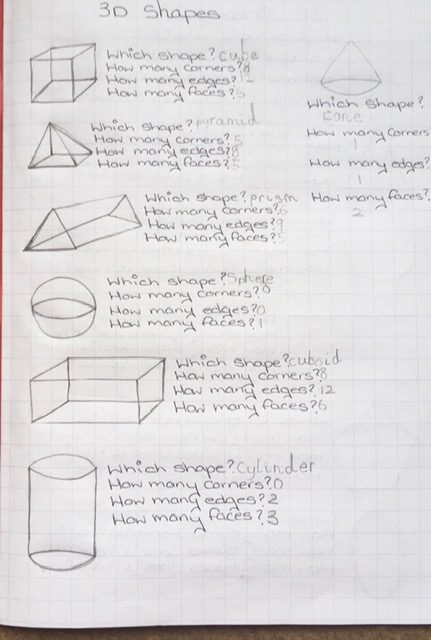 3D Shapes
Which shape? cube
How many corners? 8
How many edges? 12
How many faces?
Which shape? pyramid
How many corners? 5
How many edges? 8
How many faces? 5
Which shape? prism
How many corners? 6
How many edges? 9
How many faces? 5
Which shape? Sphere
How many corners? 0
How many edges? 0
How many faces? 1
Which shape? cuboid
How many corners? 8
How many edges? 12
How many faces? 6
Which shape? Cylinder
How many corners? 0
How many edges? 2
How many faces? 3
Which shape?
cone
How many corners
1
How many edges?
1
How many faces?
2